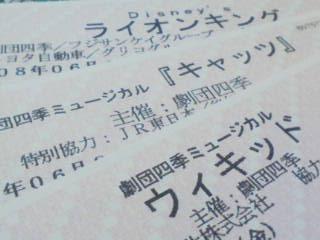 Disney's
ライオンキング
劇団四季/フジサンケイグループ
ヨタ自動車/グリコグ
08年06月
『キャッツ』
劇団四季ミュージカル
主催:劇団四季
特別協力:JR東日本
年06月
劇団四季ミュージカル
ウィキッド
主催:劇団四季
株式会社 協
(金)